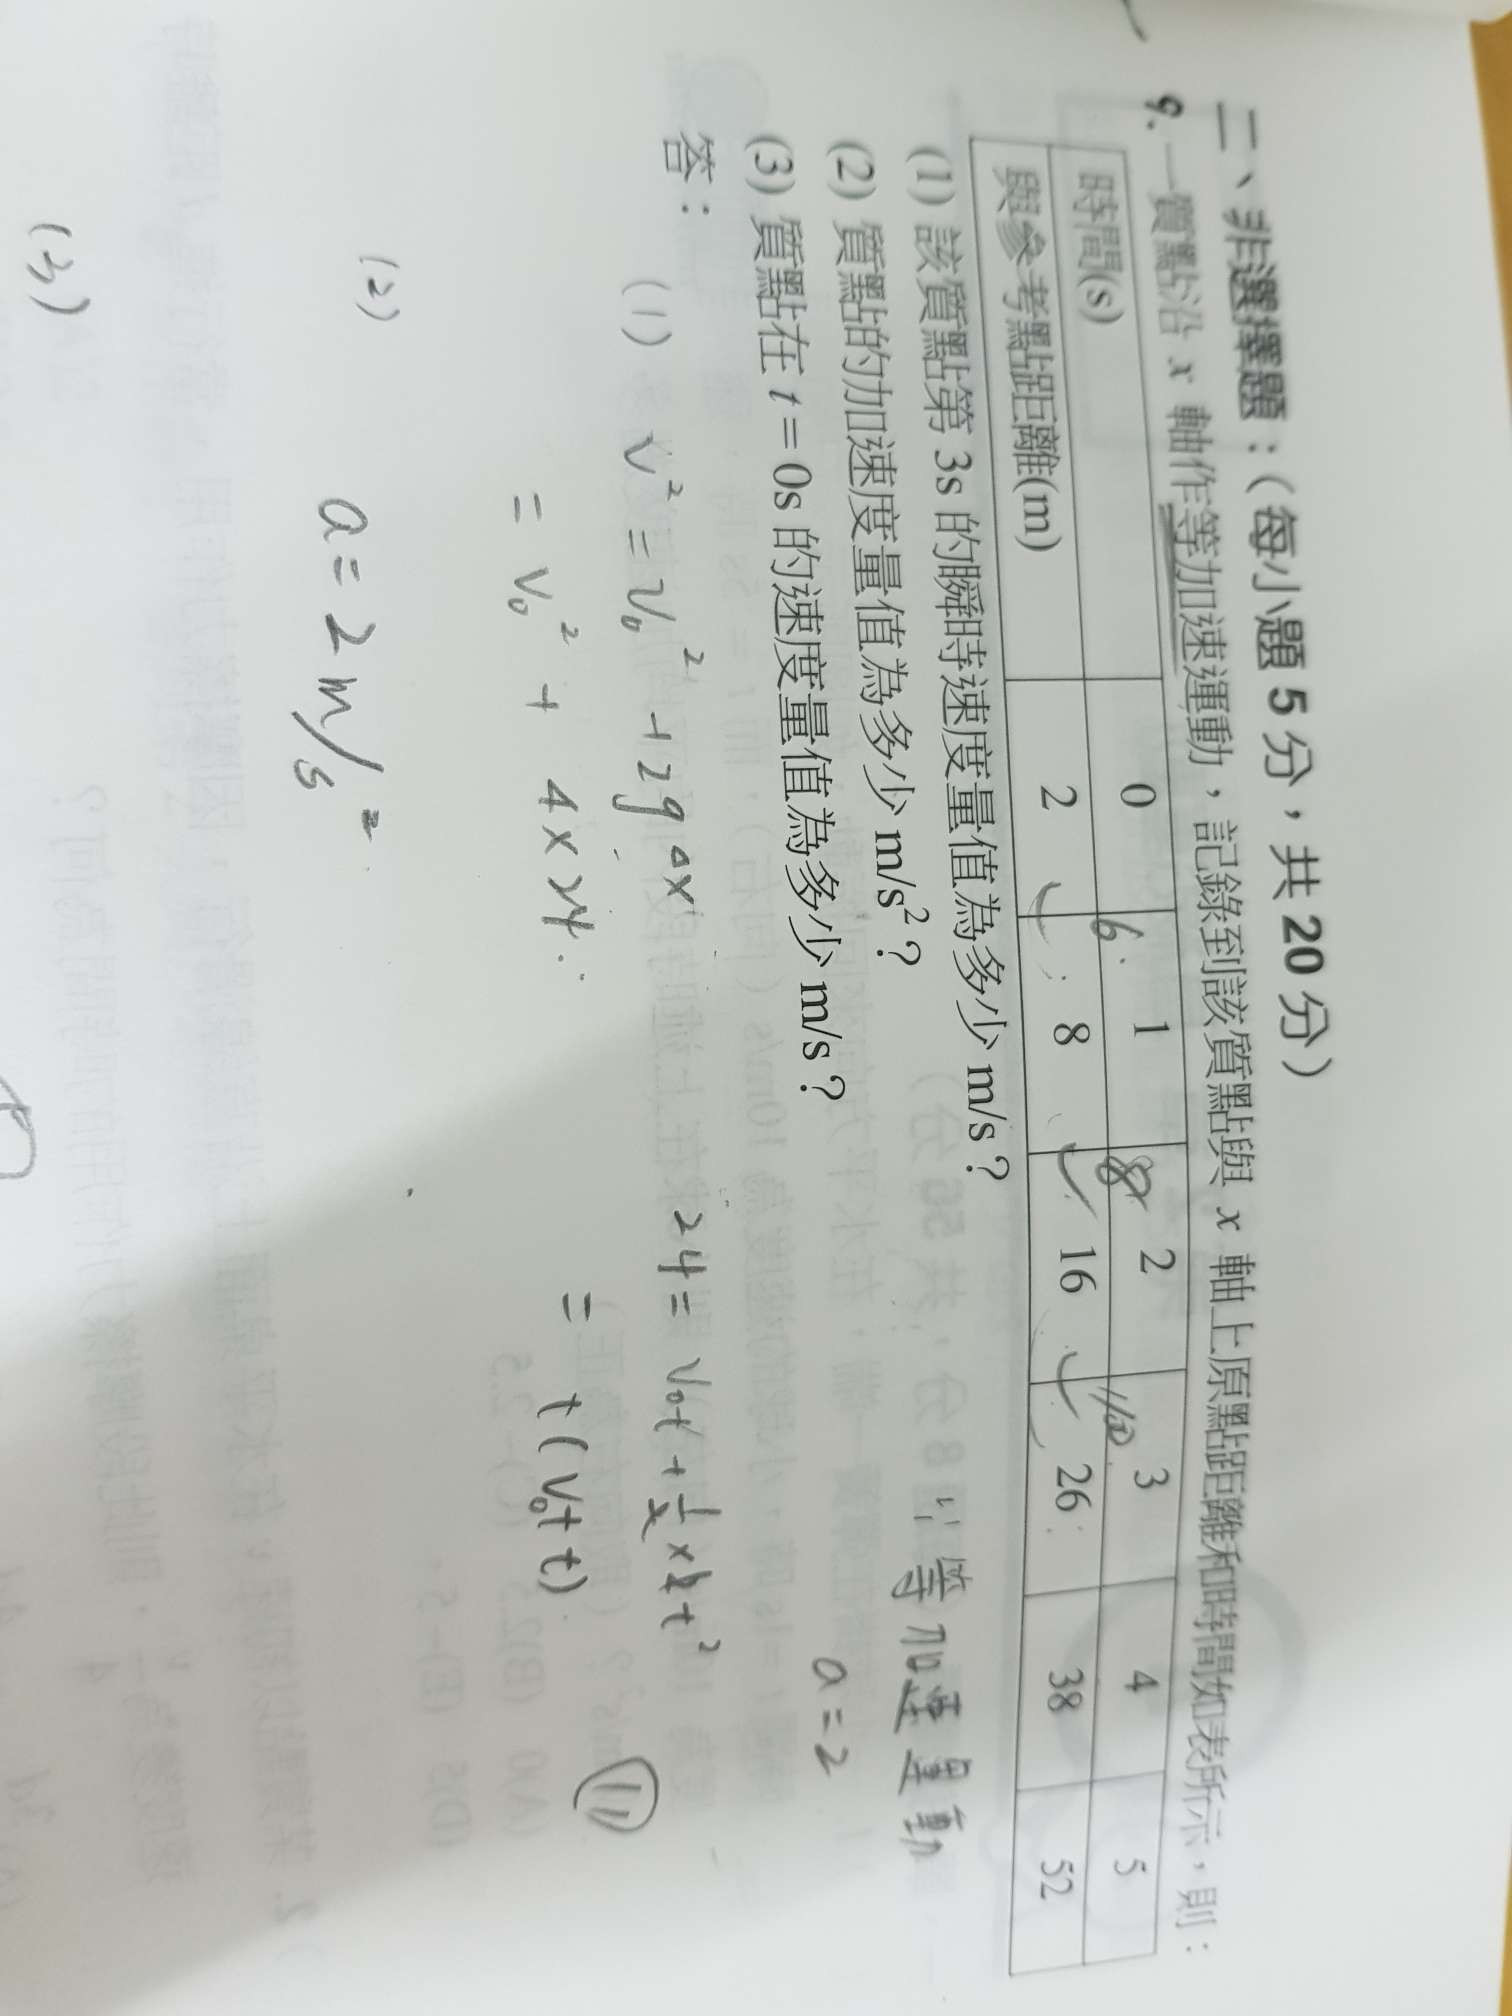 二、非選擇題：（每小題 5 分，共 20 分）
9. 一質點沿 x 軸作等加速運動，記錄到該質點與 x 軸上原點距離和時間如表所示，則：
時間(s) 0 1 2 3 4 5
6 8 10
與參考點距離(m) 2 8 16 26 38 52
(1) 該質點第 3s 的瞬時速度量值為多少 m/s？
(2) 質點的加速度量值為多少 m/s²？
(3) 質點在 t = 0s 的速度量值為多少 m/s？
答：
等加速運動
a = 2
(1) v² = v₀² + 2g △x
= v₀² + 4 × 24
24 = v₀t + ½ × 2 t²
= t (v₀ + t)
11
(2)
a = 2 m/s²
(3)